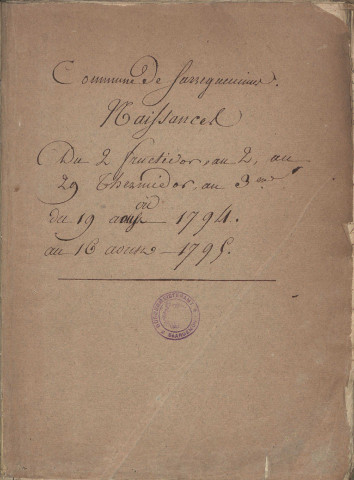 Commune de Sarreguemines.
Naissances
Du 2 fructidor, an 2, au
29 Thermidor, an 3me
ou
du 19 aoust 1794.
au 16 aoust 1795.